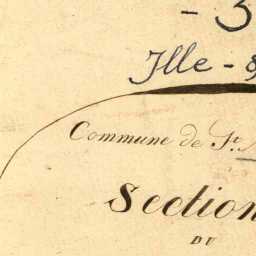 - 3
Ille - &
Commune de St.
Section
DU